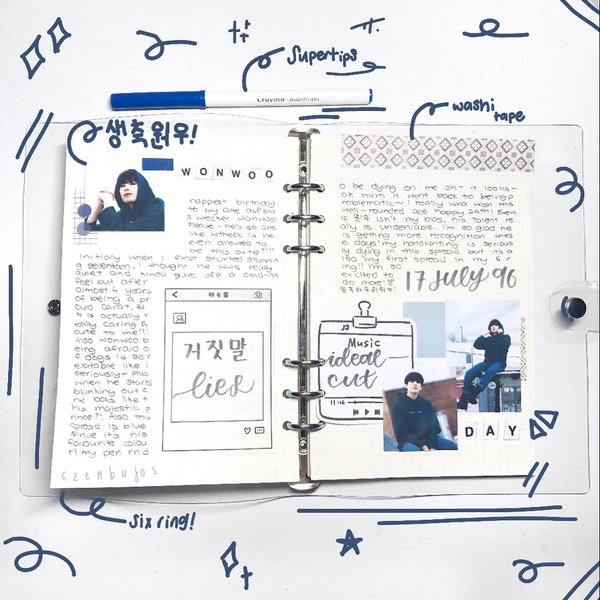 Supertips
Crayola SuperTips
washi
tape
생축원우!
WONWOO
happest birthday
to my
wrecker
please - he's so
like
even allowed to
be this cute
Initially when I first started stannin
g seventeen, I thought he was really
quiet and kinda give off a cold-ish
feel but after
almost 4 years
of being a pr
oud carat,
it is actually r
eally caring &
cute to me!!!
Also wonwoo b
eing afraid o
f dogs is so r
elatable like i
seriously - plus
when he starts
blanking out &
he looks like t
his majestic p
rince?! Also this
spread is blue
since it's his
favourite colou
r! my pen
czenbujos
거짓말
lier
o be dying on me oh- it looks-
ok
roblematic~ I really
well-rounded ace happy 24th!
isn't my bias, his talent re
ally is undeniable. I'm so glad he
getting more recognition thes
e days! my handwriting is seriousl
y dying in this spread but it's a
lso my first spread in my 6 r
ing!! I'm so
excited to
do more!
17 JULY 96
Music
ideal
cut
11:16
DAY
six ring!